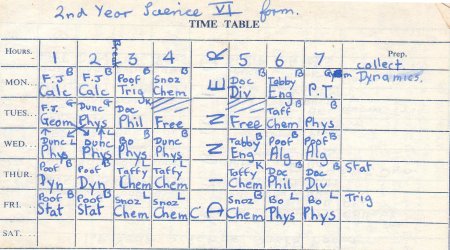 2nd Year Science VI form.
TIME TABLE
HOURS. 1 2 Break 3 4 DINNER 5 6 7 Prep.
MON. F.J B Calc F.J B Calc Poof B Trig Snoz B Chem Doc B Div Tabby B Eng Gym P.T. collect Dynamics.
TUES. F.J. G Geom Dunc G Phys Doc JK Phil Free Free Taff B Chem B Phys
WED. Dunc L Phys Dunc L Phys Bo B Phys Dunc B Phys Tabby B Eng Poof B Alg Poof B Alg
THUR. Poof B Dyn Poof B Dyn Taffy L Chem Taffy L Chem Taffy K Chem Doc B Phil Doc B Div Stat
FRI. Poof B Stat Poof B Stat Snoz L Chem Snoz L Chem Snoz B Chem Bo L Phys Bo L Phys Trig
SAT.